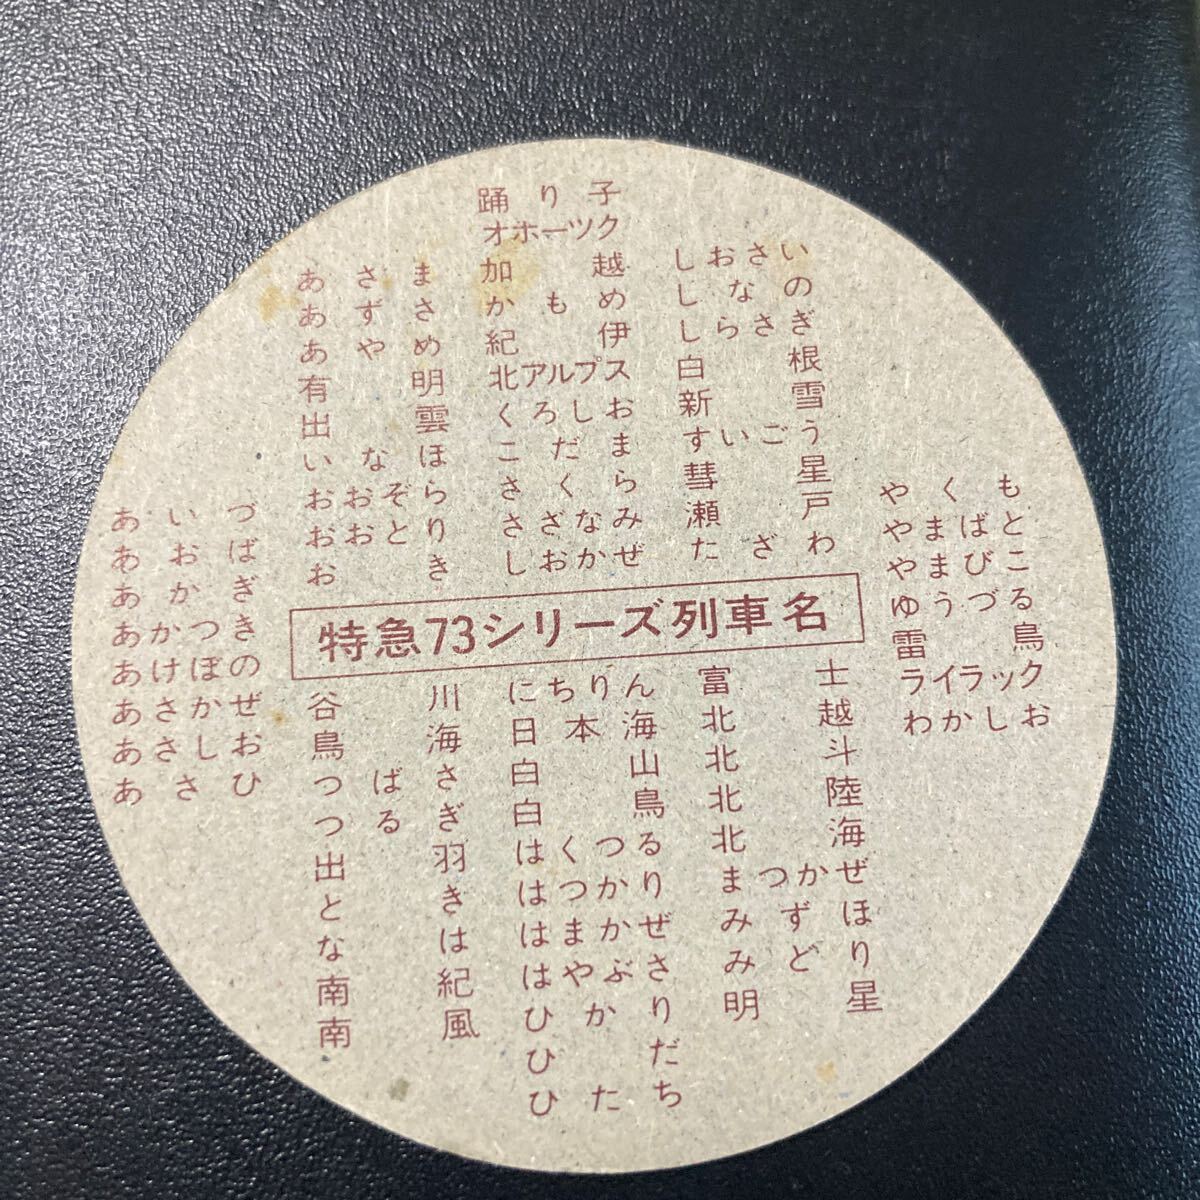 あいづ
あおば
あかぎ
あかつき
あけぼの
あさかぜ
あさしお
あさひ
あさま
あずさ
あやめ
有明
出雲
いなほ
おおぞら
おおとり
おき
踊り子
オホーツク
加越
かもめ
紀伊
北アルプス
くろしお
こだま
さくら
さざなみ
しおかぜ
しおさい
しなの
しらさぎ
白根
新雪
すいごう
彗星
瀬戸
たざわ
特急73シリーズ列車名
谷川
鳥海
つばさ
つるぎ
出羽
とき
なは
南紀
南風
にちりん
日本海
白山
白鳥
はくつる
はつかり
はまかぜ
はやぶさ
ひかり
ひだ
ひたち
富士
北越
北斗
北陸
北海
まつかぜ
みずほ
みどり
明星
やくも
やまばと
やまびこ
ゆうづる
雷鳥
ライラック
わかしお